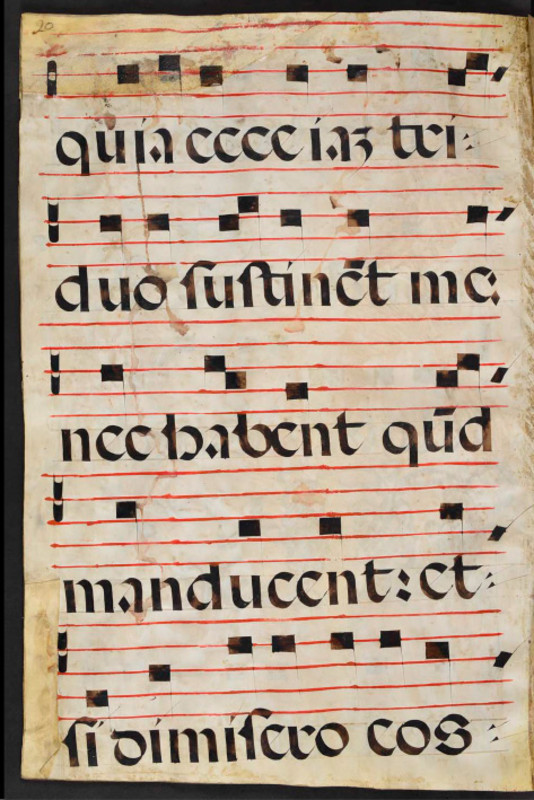 20
quia ecce iaȝ tri⸗
duo sustinēt me:
nec habent qūd
manducent: et⸗
si dimisero eos⸗